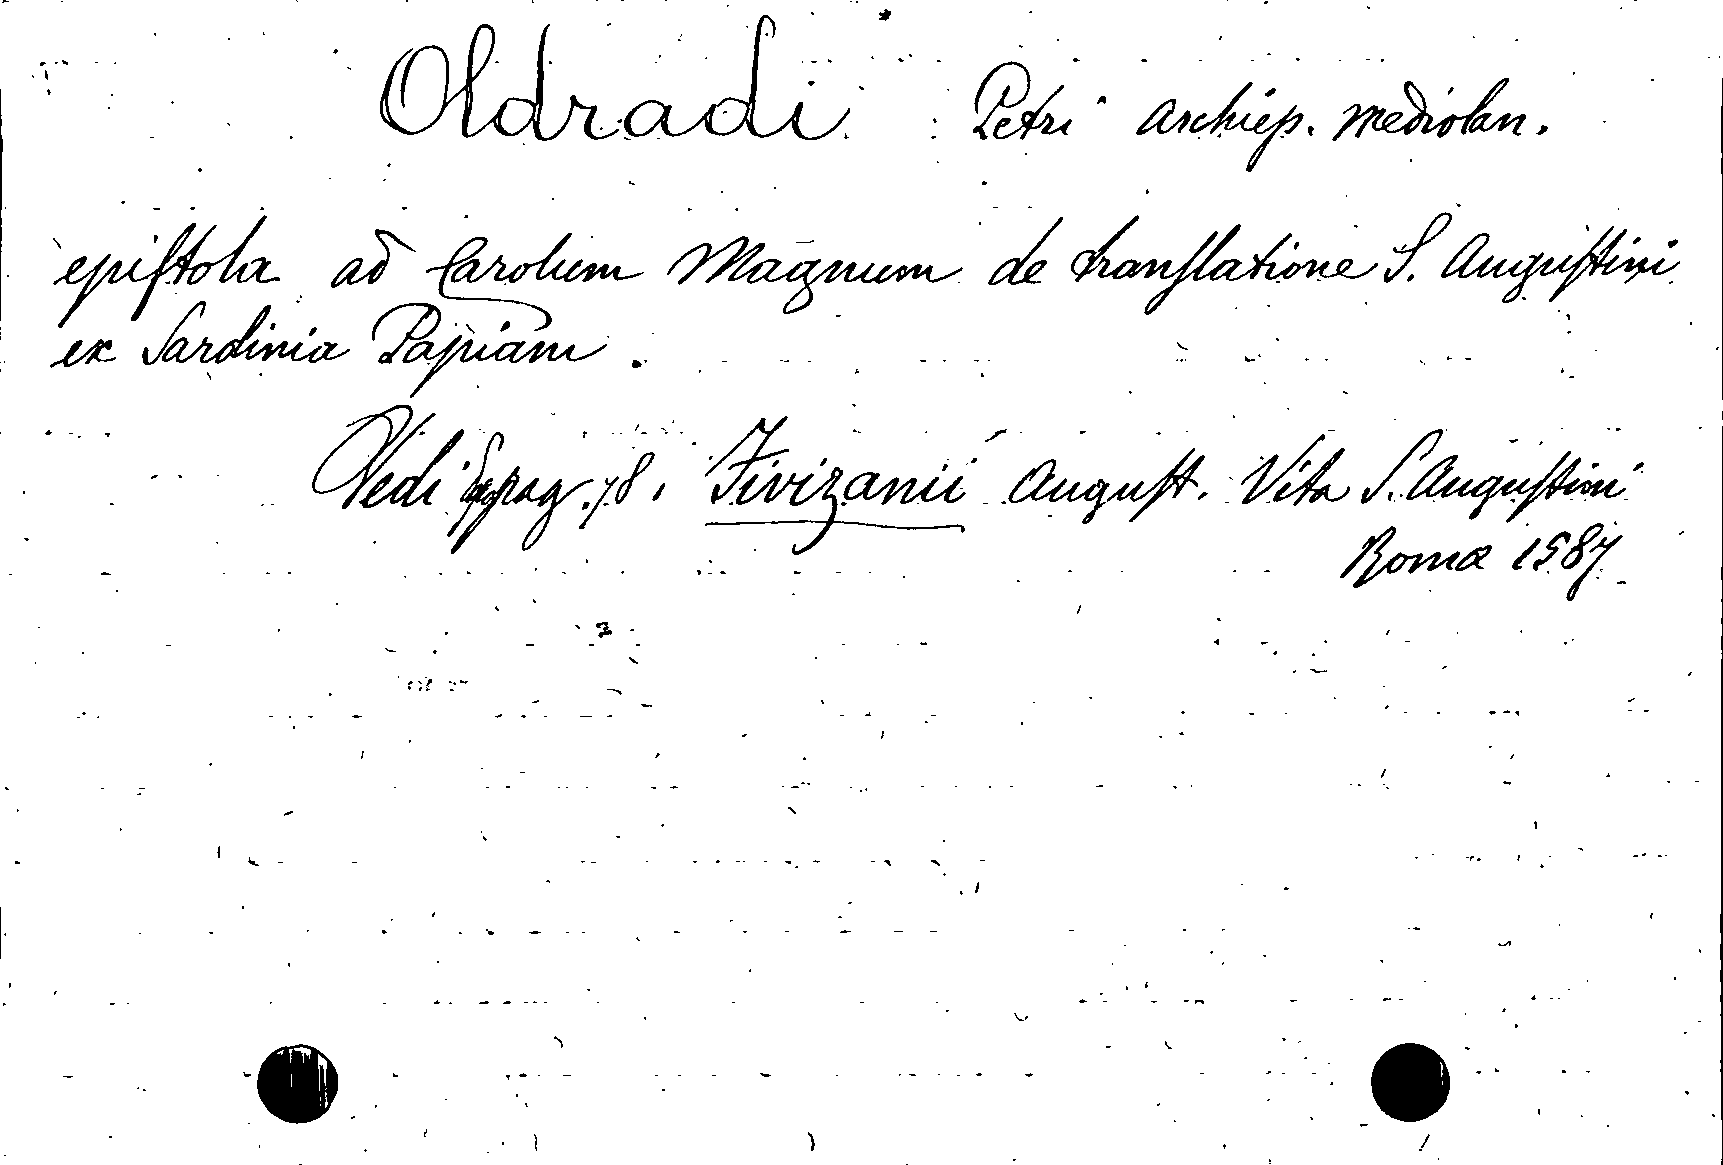 Oldradi Petri archiep. mediolan.
epiſtola ad Carolum Magnum de tranſlatione S. Auguſtini
ex Sardinia Papiam.
Vedi pag. 78. Fivizanii Auguſt. Vita S. Auguſtini
Romæ 1587